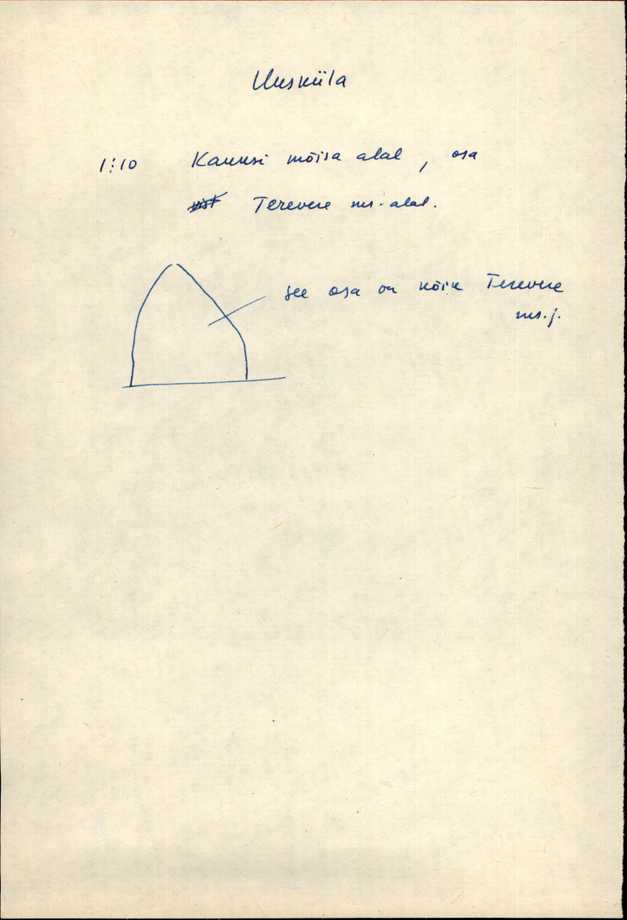 Uusküla
1:10 Kauksi mõisa alal, osa
Terevere ms. alal.
See osa on kõik Terevere
ms. j.